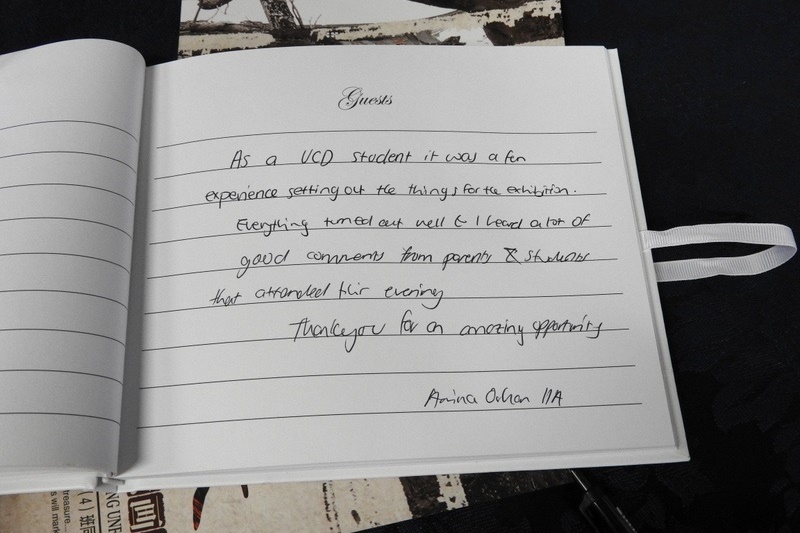 Guests
As a VCD student it was a fun
experience setting out the things for the exhibition.
Everything turned out well & I heard a lot of
good comments from parents & students
that attended this evening
Thankyou for an amazing opportunity
Amina 11A
NG UNF
(4) 班同
treasure...
s will mark